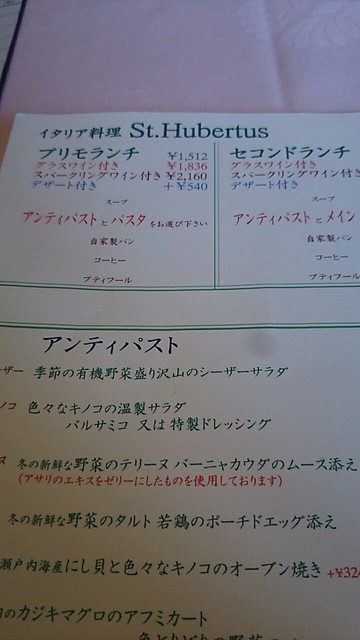 イタリア料理 St.Hubertus
プリモランチ ￥1,512
グラスワイン付き ￥1,836
スパークリングワイン付き ￥2,160
デザート付き ＋￥540
スープ
アンティパスト と パスタ をお選び下さい
自家製パン
コーヒー
プティフール
セコンドランチ
グラスワイン付き
スパークリングワイン付き
デザート付き
スープ
アンティパスト と メイン
自家製パン
コーヒー
プティフール
アンティパスト
ーザー 季節の有機野菜盛り沢山のシーザーサラダ
ノコ 色々なキノコの温製サラダ
バルサミコ 又は 特製ドレッシング
ヌ 冬の新鮮な野菜のテリーヌ バーニャカウダのムース添え
(アサリのエキスをゼリーにしたものを使用しております)
冬の新鮮な野菜のタルト 若鶏のポーチドエッグ添え
瀬戸内海産にし貝と色々なキノコのオーブン焼き +￥324
のカジキマグロのアフミカート
色とりどりの野菜の